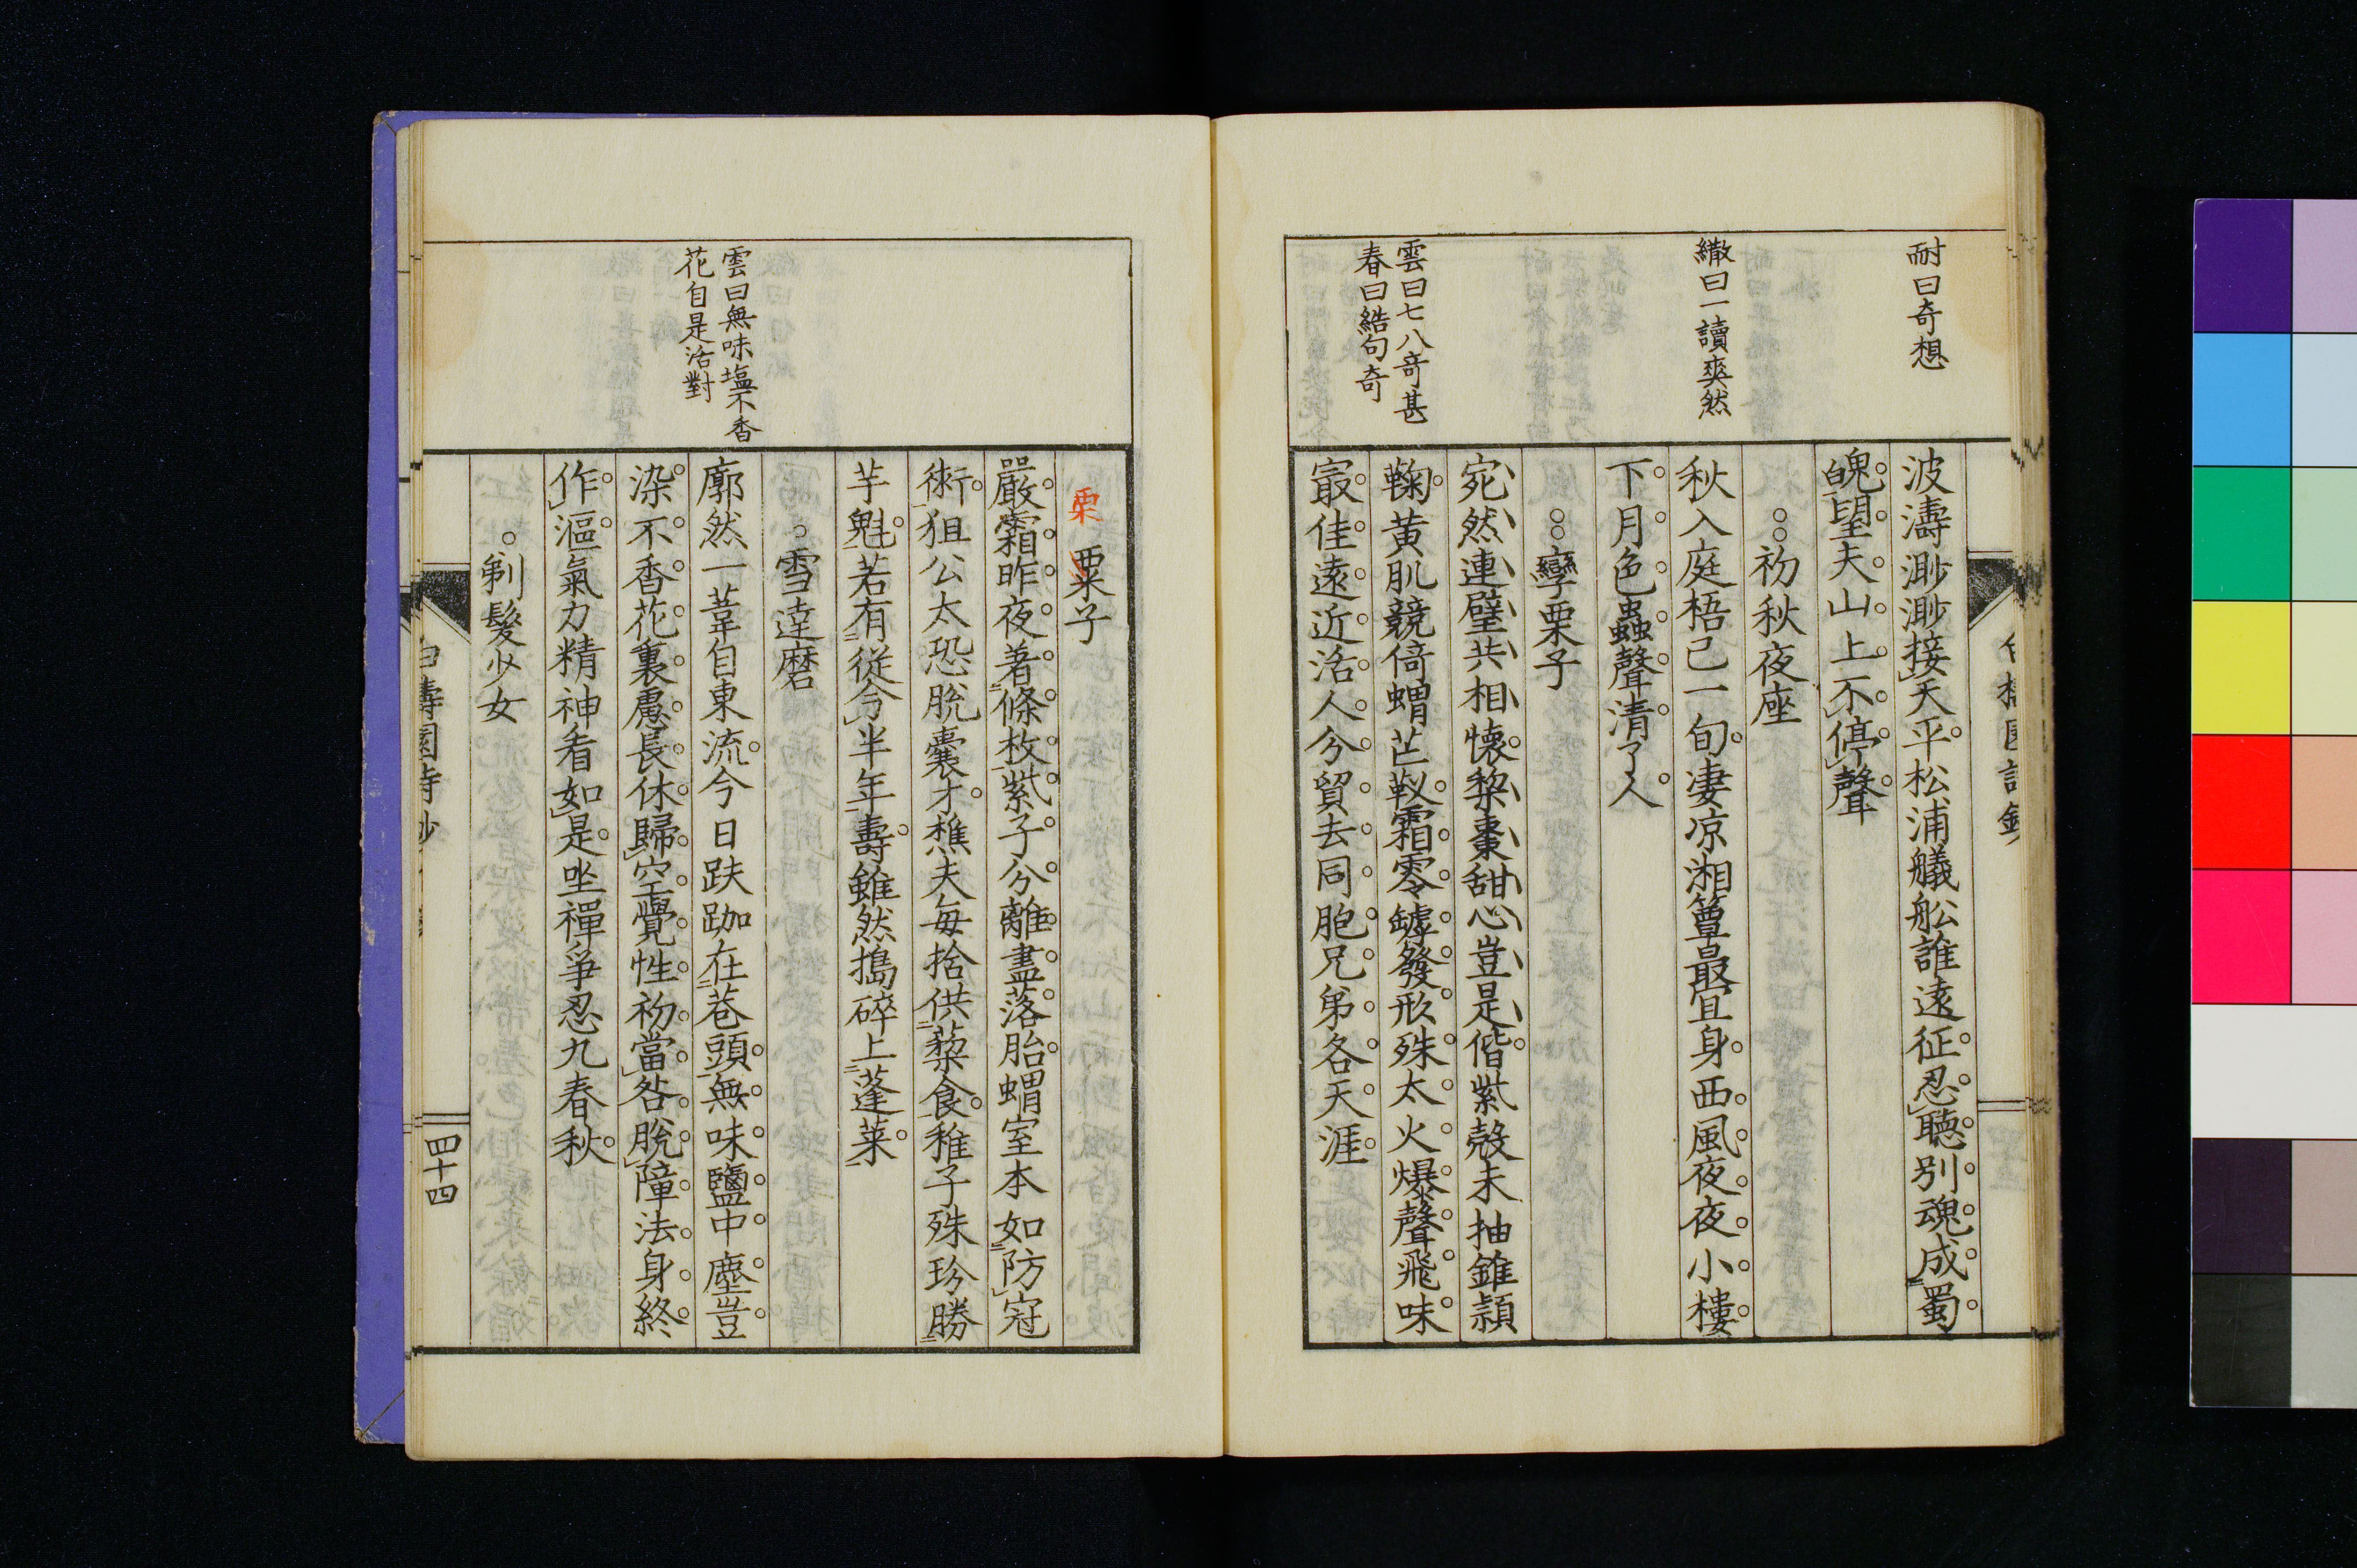 耐曰奇想
繖曰一讀爽然
雲曰七八奇甚
春曰結句奇
波濤渺渺接天平松浦艤舩誰遠征忍聽別魂成蜀
魄望夫山上不停聲
初秋夜座
秋入庭梧已一旬凄凉湘簟最宜身西風夜夜小樓
下月色蟲聲清了人
孿栗子
宛然連璧共相懷棃棗甜心豈是偕紫殼未抽錐穎
鞠黄肌競倚蝟芒䩨霜零罅發形殊太火爆聲飛味
㝡佳遠近活人分貿去同胞兄弟各天涯
雲曰無味塩不香
花自是活對
栗
粟子
嚴霜昨夜著條枚紫子分離盡落胎蝟室本如防冦
術狙公太恐脫囊才樵夫每捨供藜食稚子殊珍勝
芋魁若有從今半年壽雖然搗碎上蓬莱
雪達磨
廓然一葦自東流今日趺跏在巷頭無味鹽中塵豈
染不香花裏慮長休歸空覺性初當咎脫障法身終
作漚氣力精神看如是坐禪爭忍九春秋
剃髮少女
四十四